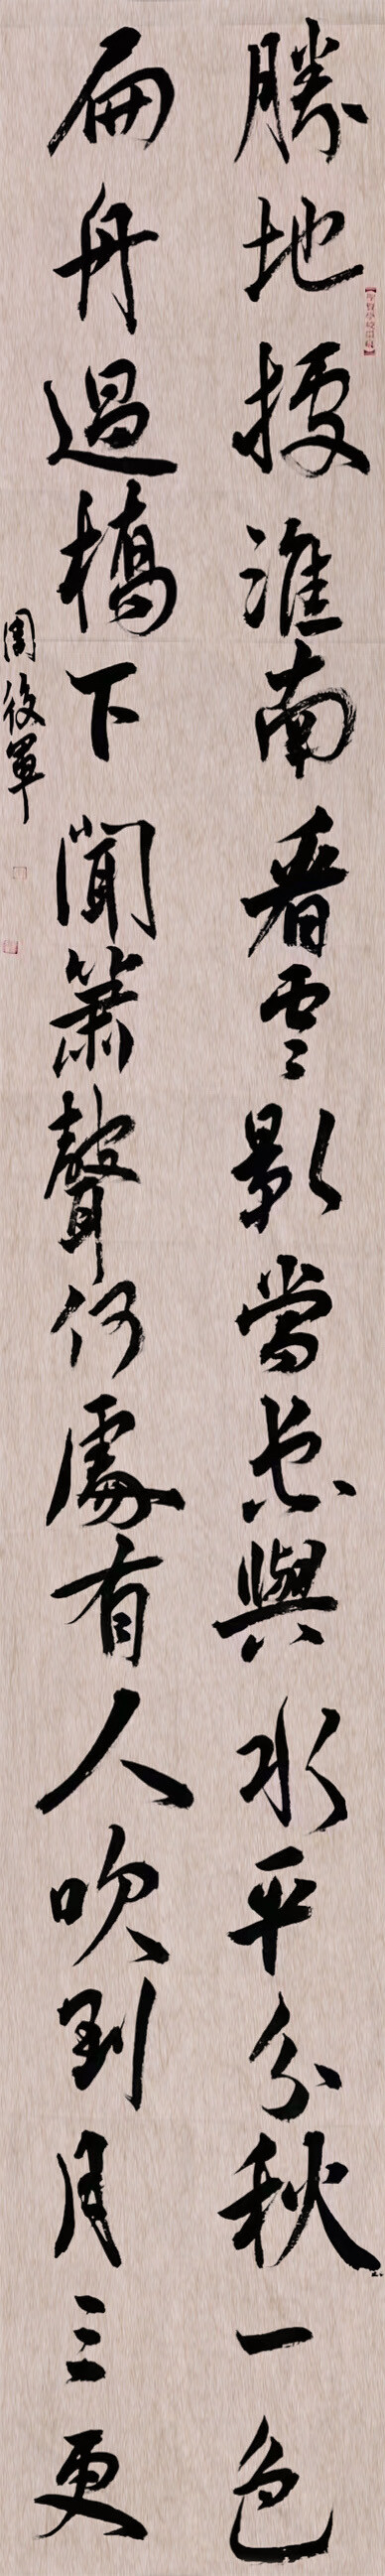 勝地據淮南看雲影當空與水平分秋一色
扁舟過橋下聞簫聲何處有人吹到月三更
周後軍